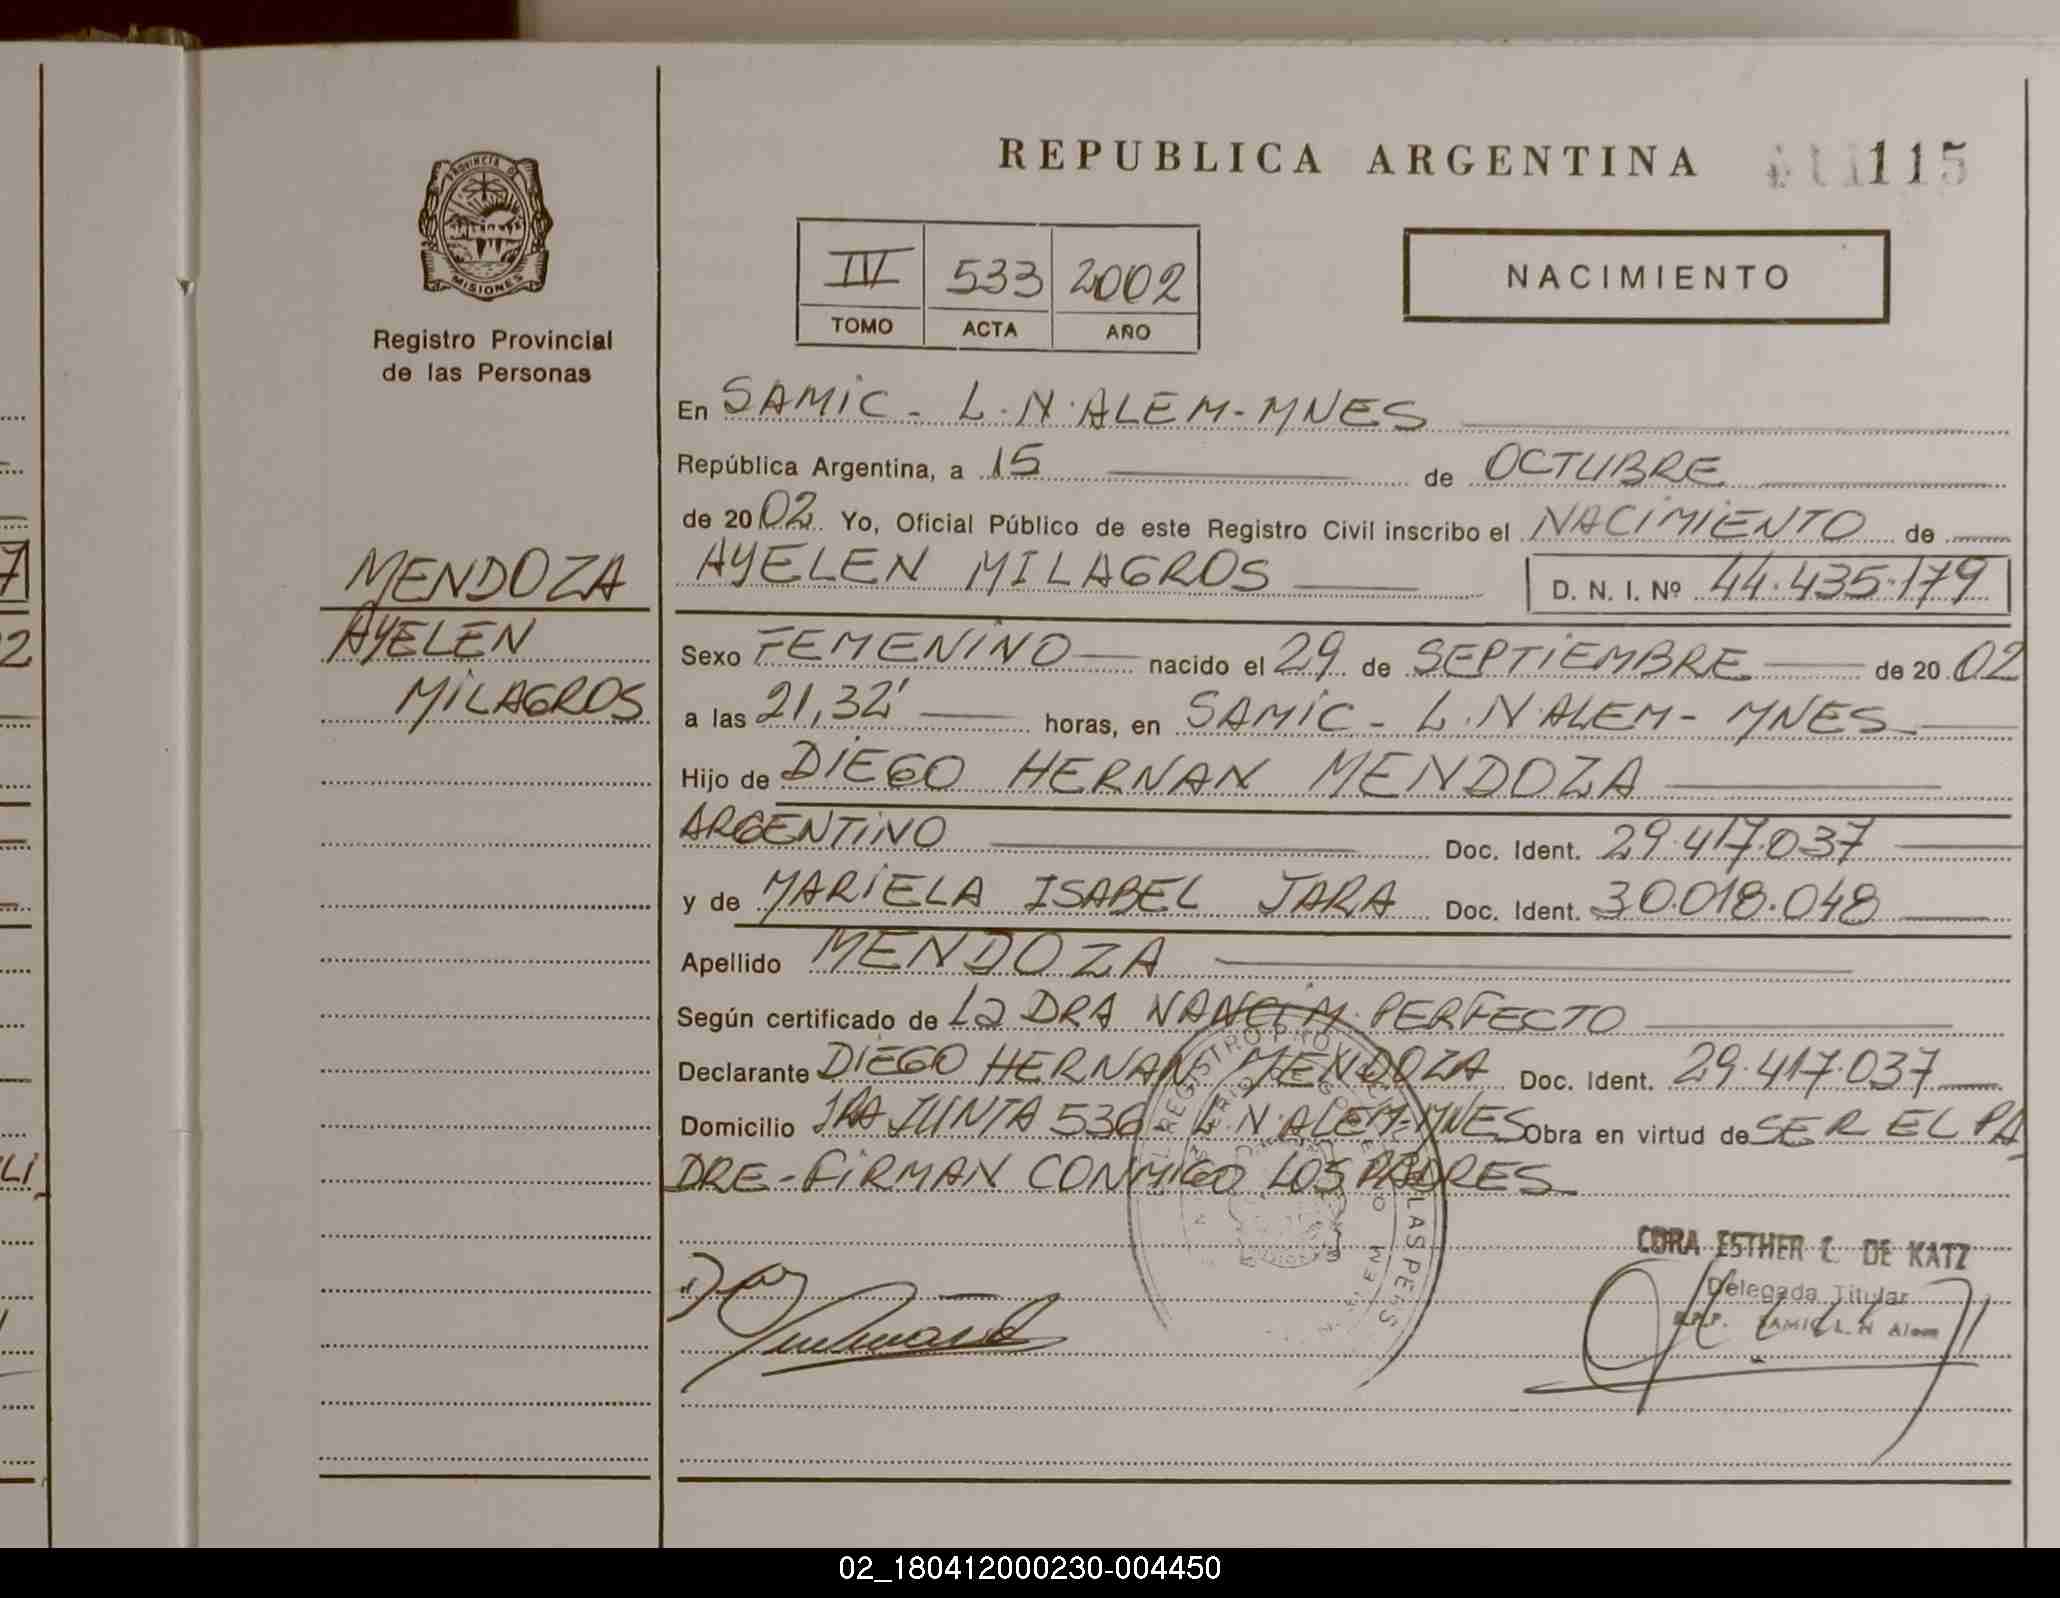 REPUBLICA ARGENTINA 115
PROVINCIA D
MISIONES
Registro Provincial
de las Personas
III 533 2002
TOMO ACTA AÑO
NACIMIENTO
MENDOZA
AYELEN
MILAGROS
En SAMIC - L.N.ALEM - MNES
República Argentina, a 15 de OCTUBRE
de 2002 Yo, Oficial Público de este Registro Civil inscribo el NACIMIENTO de
AYELEN MILAGROS D. N. I. Nº 44.435.179
Sexo FEMENINO nacido el 29 de SEPTIEMBRE de 20 02
a las 21,32' horas, en SAMIC - L.N.ALEM - MNES
Hijo de DIEGO HERNAN MENDOZA
ARGENTINO Doc. Ident. 29.417.037
y de MARIELA ISABEL JARA Doc. Ident. 30.018.048
Apellido MENDOZA
Según certificado de La DRA NANCI M. PERFECTO
Declarante DIEGO HERNAN MENDOZA Doc. Ident. 29.417.037
Domicilio 1RA JUNTA 536 - L.N.ALEM-MNES Obra en virtud de SER EL PA
DRE - FIRMAN CONMIGO LOS PADRES
CORA ESTHER DE KATZ
Delegada Titular
SAMIC L. N Alem
02_180412000230-004450